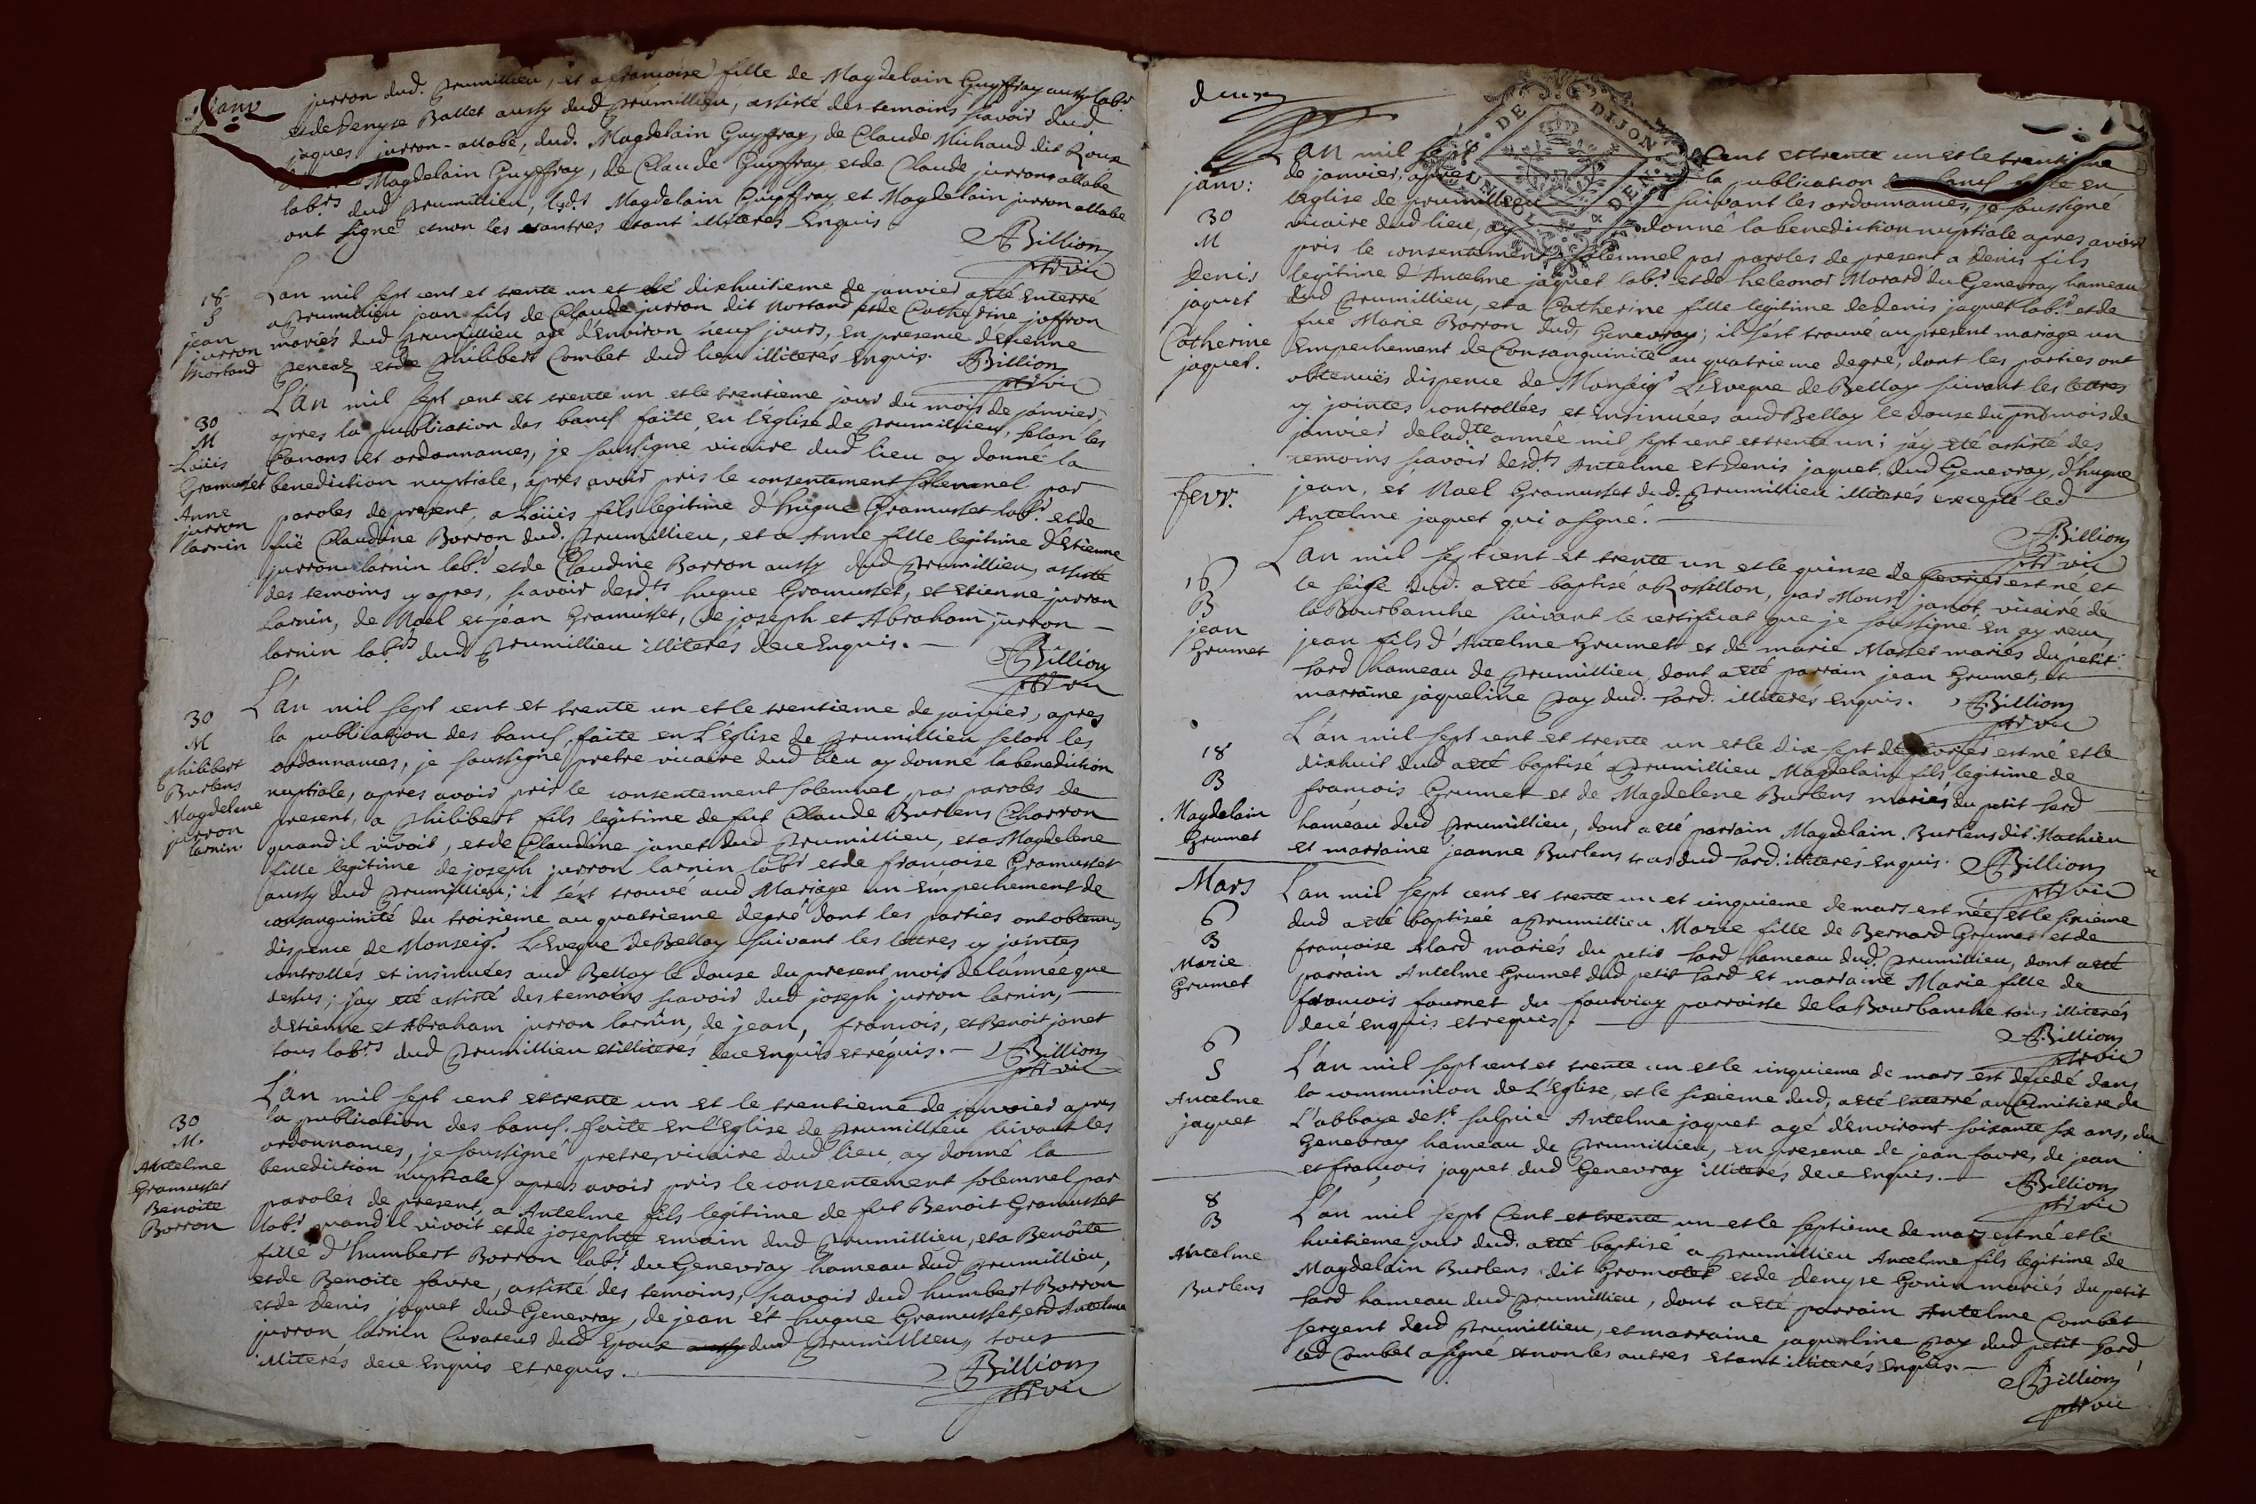 janv
jurron dud. prumillieu, et a francoise fille de Magdelain Guyffray aussy lab.r
et de Denyse Ballet aussy dud prumillieu, assisté des temoins scavoir dud
jaques jurron-allabe, dud. Magdelain Guyffray, de Claude Michaud dit Roux
Magdelain Guyffray, de Claude Guyffray et de Claude jurron allabe
lab.rs dud prumillieu, lesd.ts Magdelain Guyffray et Magdelain jurron allabe
ont signé et non les autres etant illiterés Enquis
Billion
ptr vic
18
S
jean
jurron
Mortand
L'an mil sept cent et trente un et le dixhuitieme de janvier a eté enterré
a prumillieu jean fils de Claude jurron dit Mortand et de Catherine joffron
mariés dud prumillieu agé d'Environ neuf jours, en presence d'Etienne
et de philibert Combet dud lieu illiteres Enquis.
Billion
ptr vic
30
M
Loüis
Gramusset
Anne
jurron
larnin
L'an mil sept cent et trente un et le trentieme jour du mois de janvier,
apres la publication des bancs faite en l'église de prumillieu, selon les
Canons et ordonnances, je soussigné vicaire dud lieu ay donné la
benediction nuptiale, apres avoir pris le consentement solemnel par
paroles de present, a Loüis fils legitime d'hugue Gramusset lab.r et de
füe Claudine Borron dud. prumillieu, et a Anne fille legitime d'Etienne
jurron larnin lab.r et de Claudine Borron aussy dud prumillieu, assisté
des temoins cy apres, scavoir desd.ts hugue Gramusset, et Etienne jurron
Larnin, de Noel et jéan Gramusset, de joseph et Abraham jurron
larnin lab.rs dud prumillieu illiterés de ce Enquis.
Billion
ptr vic
30
M
philibert
Burlens
Magdelene
jurron
larnin
L'an mil sept cent et trente un et le trentieme de janvier, apres
la publication des bancs, faite en L'Eglise de prumillieu selon les
ordonnances, je soussigné pretre vicaire dud lieu ay donné la benediction
nuptiale, apres avoir pris le consentement solemnel par paroles de
present, a philibert fils legitime de fut Claude Burlens Charron
quand il vivoit, et de Claudine janet dud prumillieu, et a Magdelene
fille legitime de joseph jurron larnin lab.r et de francoise Gramusset
aussy dud prumillieu; il s'est trouvé aud Mariage un Empechement de
consanguinité du troisieme au quatrieme degré dont les parties ont obtenues
dispence de Monseig.r L'Eveque de Bellay suivant les lettres cy jointes
controllés et insinuées aud Bellay le douse du present mois de l'année que
dessus; j'ay eté assisté des temoins scavoir dud joseph jurron larnin,
d'Etienne et Abraham jurron larnin, de jean, francois, et Benoit janet
tous lab.rs dud prumillieu et illiterés de ce Enquis et requis.
Billion
ptr vic
30
M.
Antelme
Gramusset
Benoite
Borron
L'an mil sept cent et trente un et le trentieme de janvier apres
la publication des bancs. faite en l'Eglise de prumillieu suivant les
ordonnances, je soussigné pretre, vicaire dud lieu ay donné la
benediction nuptiale, apres avoir pris le consentement solemnel par
paroles de present, a Antelme fils legitime de fut Benoit Gramusset
lab.r quand il vivoit et de josephte emain dud prumillieu, et a Benoîte
fille d'humbert Borron lab.r du Genevray hameau dud prumillieu,
et de Benoite favre, assisté des temoins, scavoir dud humbert Borron
et de Denis jaquet dud Genevray, de jean et hugue Gramusset, et d'Antelme
jurron larnin Curateur dud Epoux dud prumillieu, tous
illiterés de ce Enquis et requis.
Billion
ptr vic
deux
DE DIJON
janv:
30
M
Denis
jaquet
Catherine
jaquet.
L'an mil sept Cent et trente un et le trentieme
de janvier, apres la publication des bancs faite en
l'eglise de prumillieu suivant les ordonnances, je soussigné
vicaire dud lieu, ay donné la benediction nuptiale apres avoir
pris le consentement solemnel par paroles de present a Denis fils
legitime d'Antelme jaquet lab.r et de heleonor Marard du Genevray hameau
dud prumillieu, et a Catherine fille legitime de Denis jaquet lab.r et de
fue Marie Borron dud Genevray; il s'est trouvé au present mariage un
Empechement de Consanguinité au quatrieme degré, dont les parties ont
obtenuës dispence de Monseig.r L'Eveque de Bellay suivant les lettres
cy jointes controllées et insinuées aud Bellay le douse du pnt mois de
janvier de lad.te année mil sept cent et trente un; j'ay eté assisté des
temoins scavoir desd.ts Antelme et Denis jaquet dud Genevray, d'hugue
jean, et Noel Gramusset dud. prumillieu illiterés excepté led
Antelme jaquet qui a signé.
Billion
ptr vic
fevr.
16
B
jean
Grumet
L'an mil sept cent et trente un et le quinse de fevrier est né et
le seise dud. a eté baptisé a Rossillon, par Mons.r janot, vicaire de
la Bourbanche suivant le certificat que je soussigné en ay reçu
jean fils d'Antelme Grumet et de marie Massel mariés du petit
hard hameau de prumillieu, dont a eté parrain jean Grumet, et
marraine jaqueline pay dud. hard. illiterés enquis.
Billion
ptr vic
18
B
Magdelain
Grumet
L'an mil sept cent et trente un et le dix sept de fevrier est né et le
dixhuit dud a eté baptisé a prumillieu Magdelain fils legitime de
françois Grumet et de Magdelene Burlens mariés du petit hard
hameau dud prumillieu, dont a eté parrain Magdelain Burlens dit Mathieu
et marraine jeanne Burlens dud hard. illiterés enquis.
Billion
ptr vic
Mars
6
B
Marie
Grumet
L'an mil sept cent et trente un et cinquieme de mars est née, et le sixieme
dud a eté baptisée a prumillieu Marie fille de Bernard Grumet et de
francoise Alard mariés du petit hard hameau dud prumillieu, dont a eté
parrain Antelme Grumet dud petit hard et marraine Marie fille de
francois fournet du fourviay parroisse de la Bourbanche tous illiterés
de cé enquis et requis.
Billion
ptr vic
6
S
Antelme
jaquet
L'an mil sept cent et trente un et le cinquieme de mars est decedé dans
la communion de L'Eglise, et le sixieme dud, a eté enterré au Cimitiere de
L'abbaye de S.t sulpice Antelme jaquet agé d'Environt soixante six ans, du
Genevray hameau de prumillieu, en presence de jean favre, de jean
et françois jaquet dud Genevray illiterés de ce enquis.
Billion
ptr vic
8
B
Antelme
Burlens
L'an mil sept Cent et trente un et le septieme de mars est né et le
huitieme jour dud. a eté baptisé a prumillieu Antelme fils legitime de
Magdelain Burlens dit Gromolet et de Denyse Gonin mariés du petit
hard hameau dud prumillieu, dont a eté parrain Antelme Combet
sergent dud prumillieu, et marraine jaqueline pay dud petit hard
led Combet a signé et non les autres etant illiterés enquis.
Billion
ptr vic